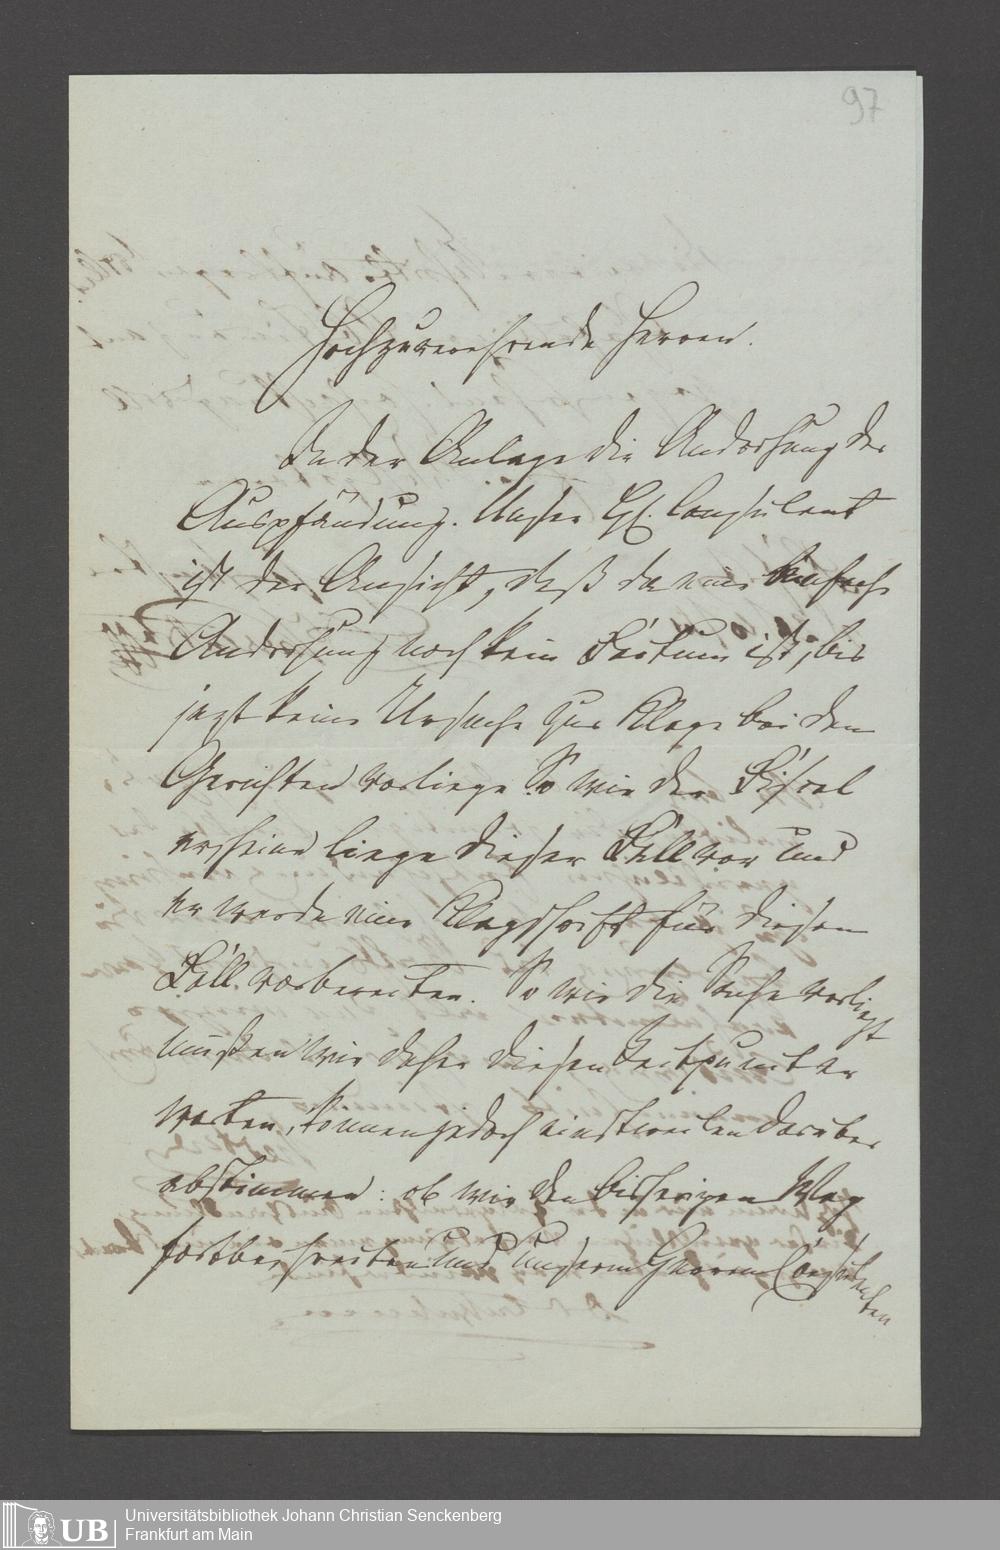 97
Hochzuverehrende Herren.
In der Anlage die Androhung der
Auspfändung. Unser H. Consulent
ist der Ansicht, daß da eine einfache
Androhung noch kein Factum ist, bis
jezt keine Ursache zur Klage bei den
Gerichten vorliege. So wie der Fiscal
erscheine liege dieser Fall vor und
er werde eine Klagschrift für diesen
Fall vorbereiten. So wie die Sache vorliegt
mußten wir daher diesen Zeitpunct er
warten, können jedoch einstweilen darüber
abstimmen: ob wir den bisherigen Weg
fortbeschreiten und unserm Herren Consulenten
Universitätsbibliothek Johann Christian Senckenberg
Frankfurt am Main
UB